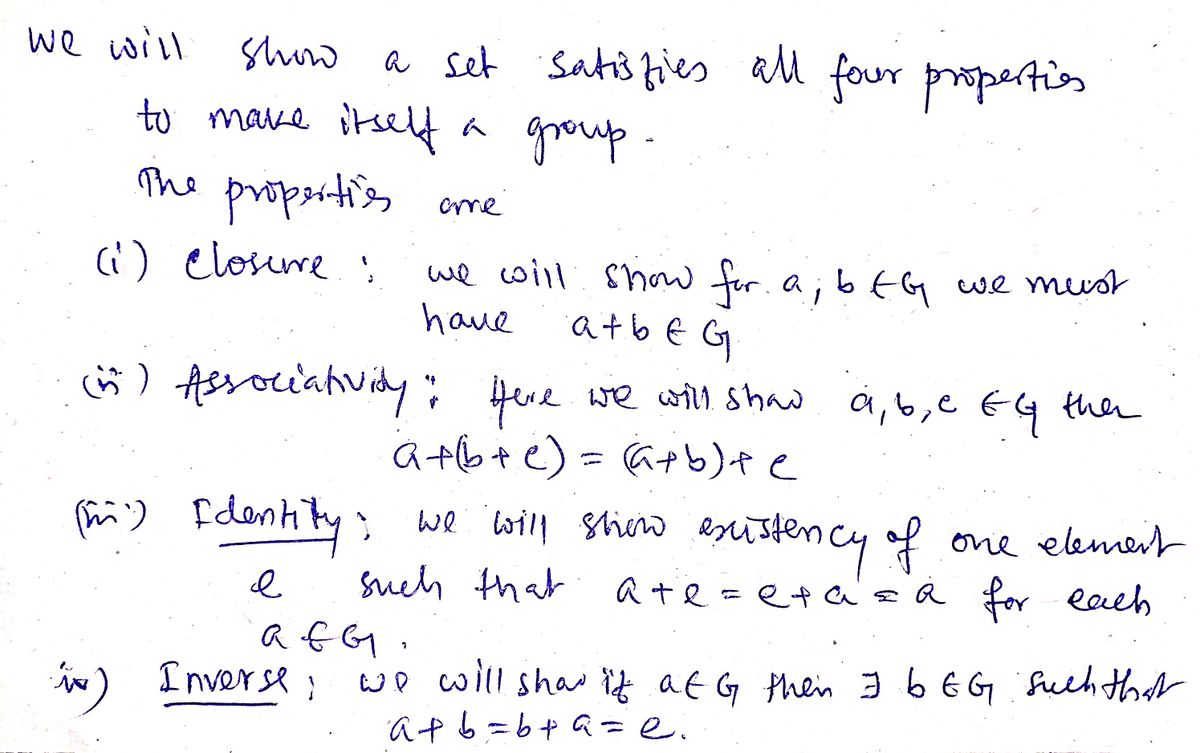 We will show a set satisfies all four properties
to make itself a group.
The properties are
(i) Closure : we will show for a, b ∈ G we must
have a+b ∈ G
(ii) Associativity : Here we will show a, b, c ∈ G then
a+(b+c) = (a+b)+c
(iii) Identity ; we will show existency of one element
e such that a+e = e+a = a for each
a ∈ G.
iv) Inverse ; we will show if a ∈ G then ∃ b ∈ G such that
a+b = b+a = e.